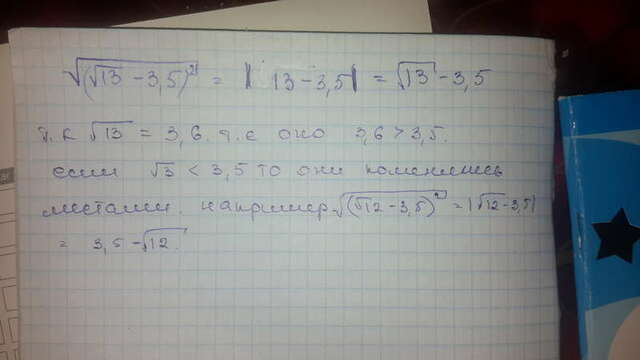 √(√13 - 3,5)² = | 13 - 3,5| = √13 - 3,5
т. к √13 = 3,6. т. е оно 3,6 > 3,5.
если √3 < 3,5 то они поменялись
местами. например √(√12 - 3,5)² = |√12 - 3,5|
= 3,5 - √12.